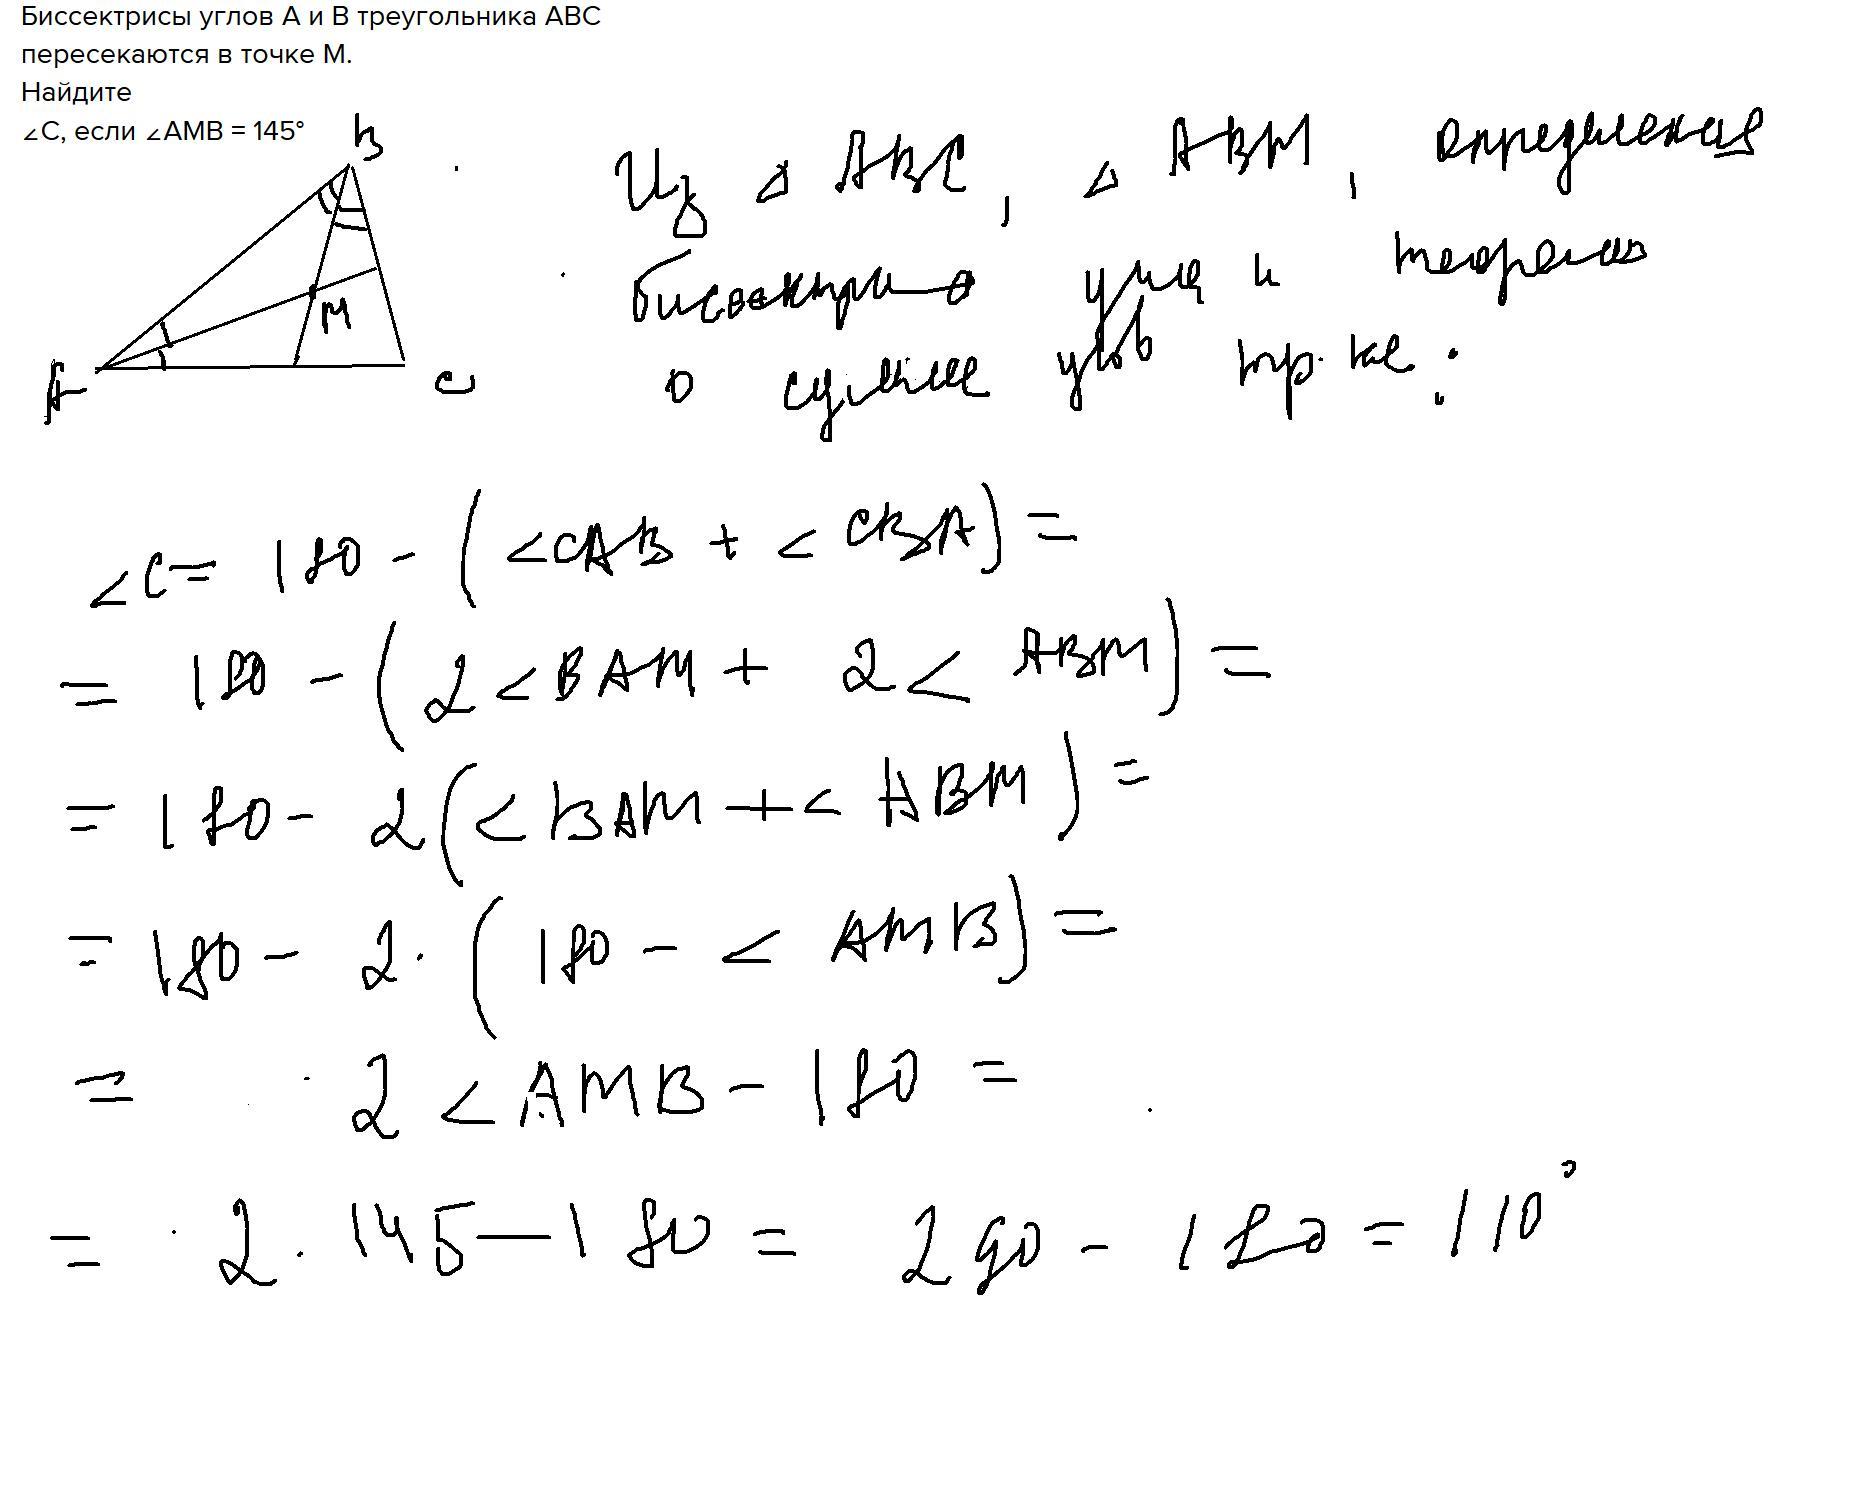 Биссектрисы углов A и B треугольника ABC
пересекаются в точке M.
Найдите
∠C, если ∠AMB = 145°
B
M
A
C
Из △ ABC, △ ABM, определения
биссектрис угла и теоремы
о сумме углов тр-ке:
∠C = 180 - (∠CAB + ∠CBA) =
= 180 - (2∠BAM + 2∠ABM) =
= 180 - 2(∠BAM + ∠ABM) =
= 180 - 2·(180 - ∠AMB) =
= 2∠AMB - 180 =
= 2·145 - 180 = 290 - 180 = 110°